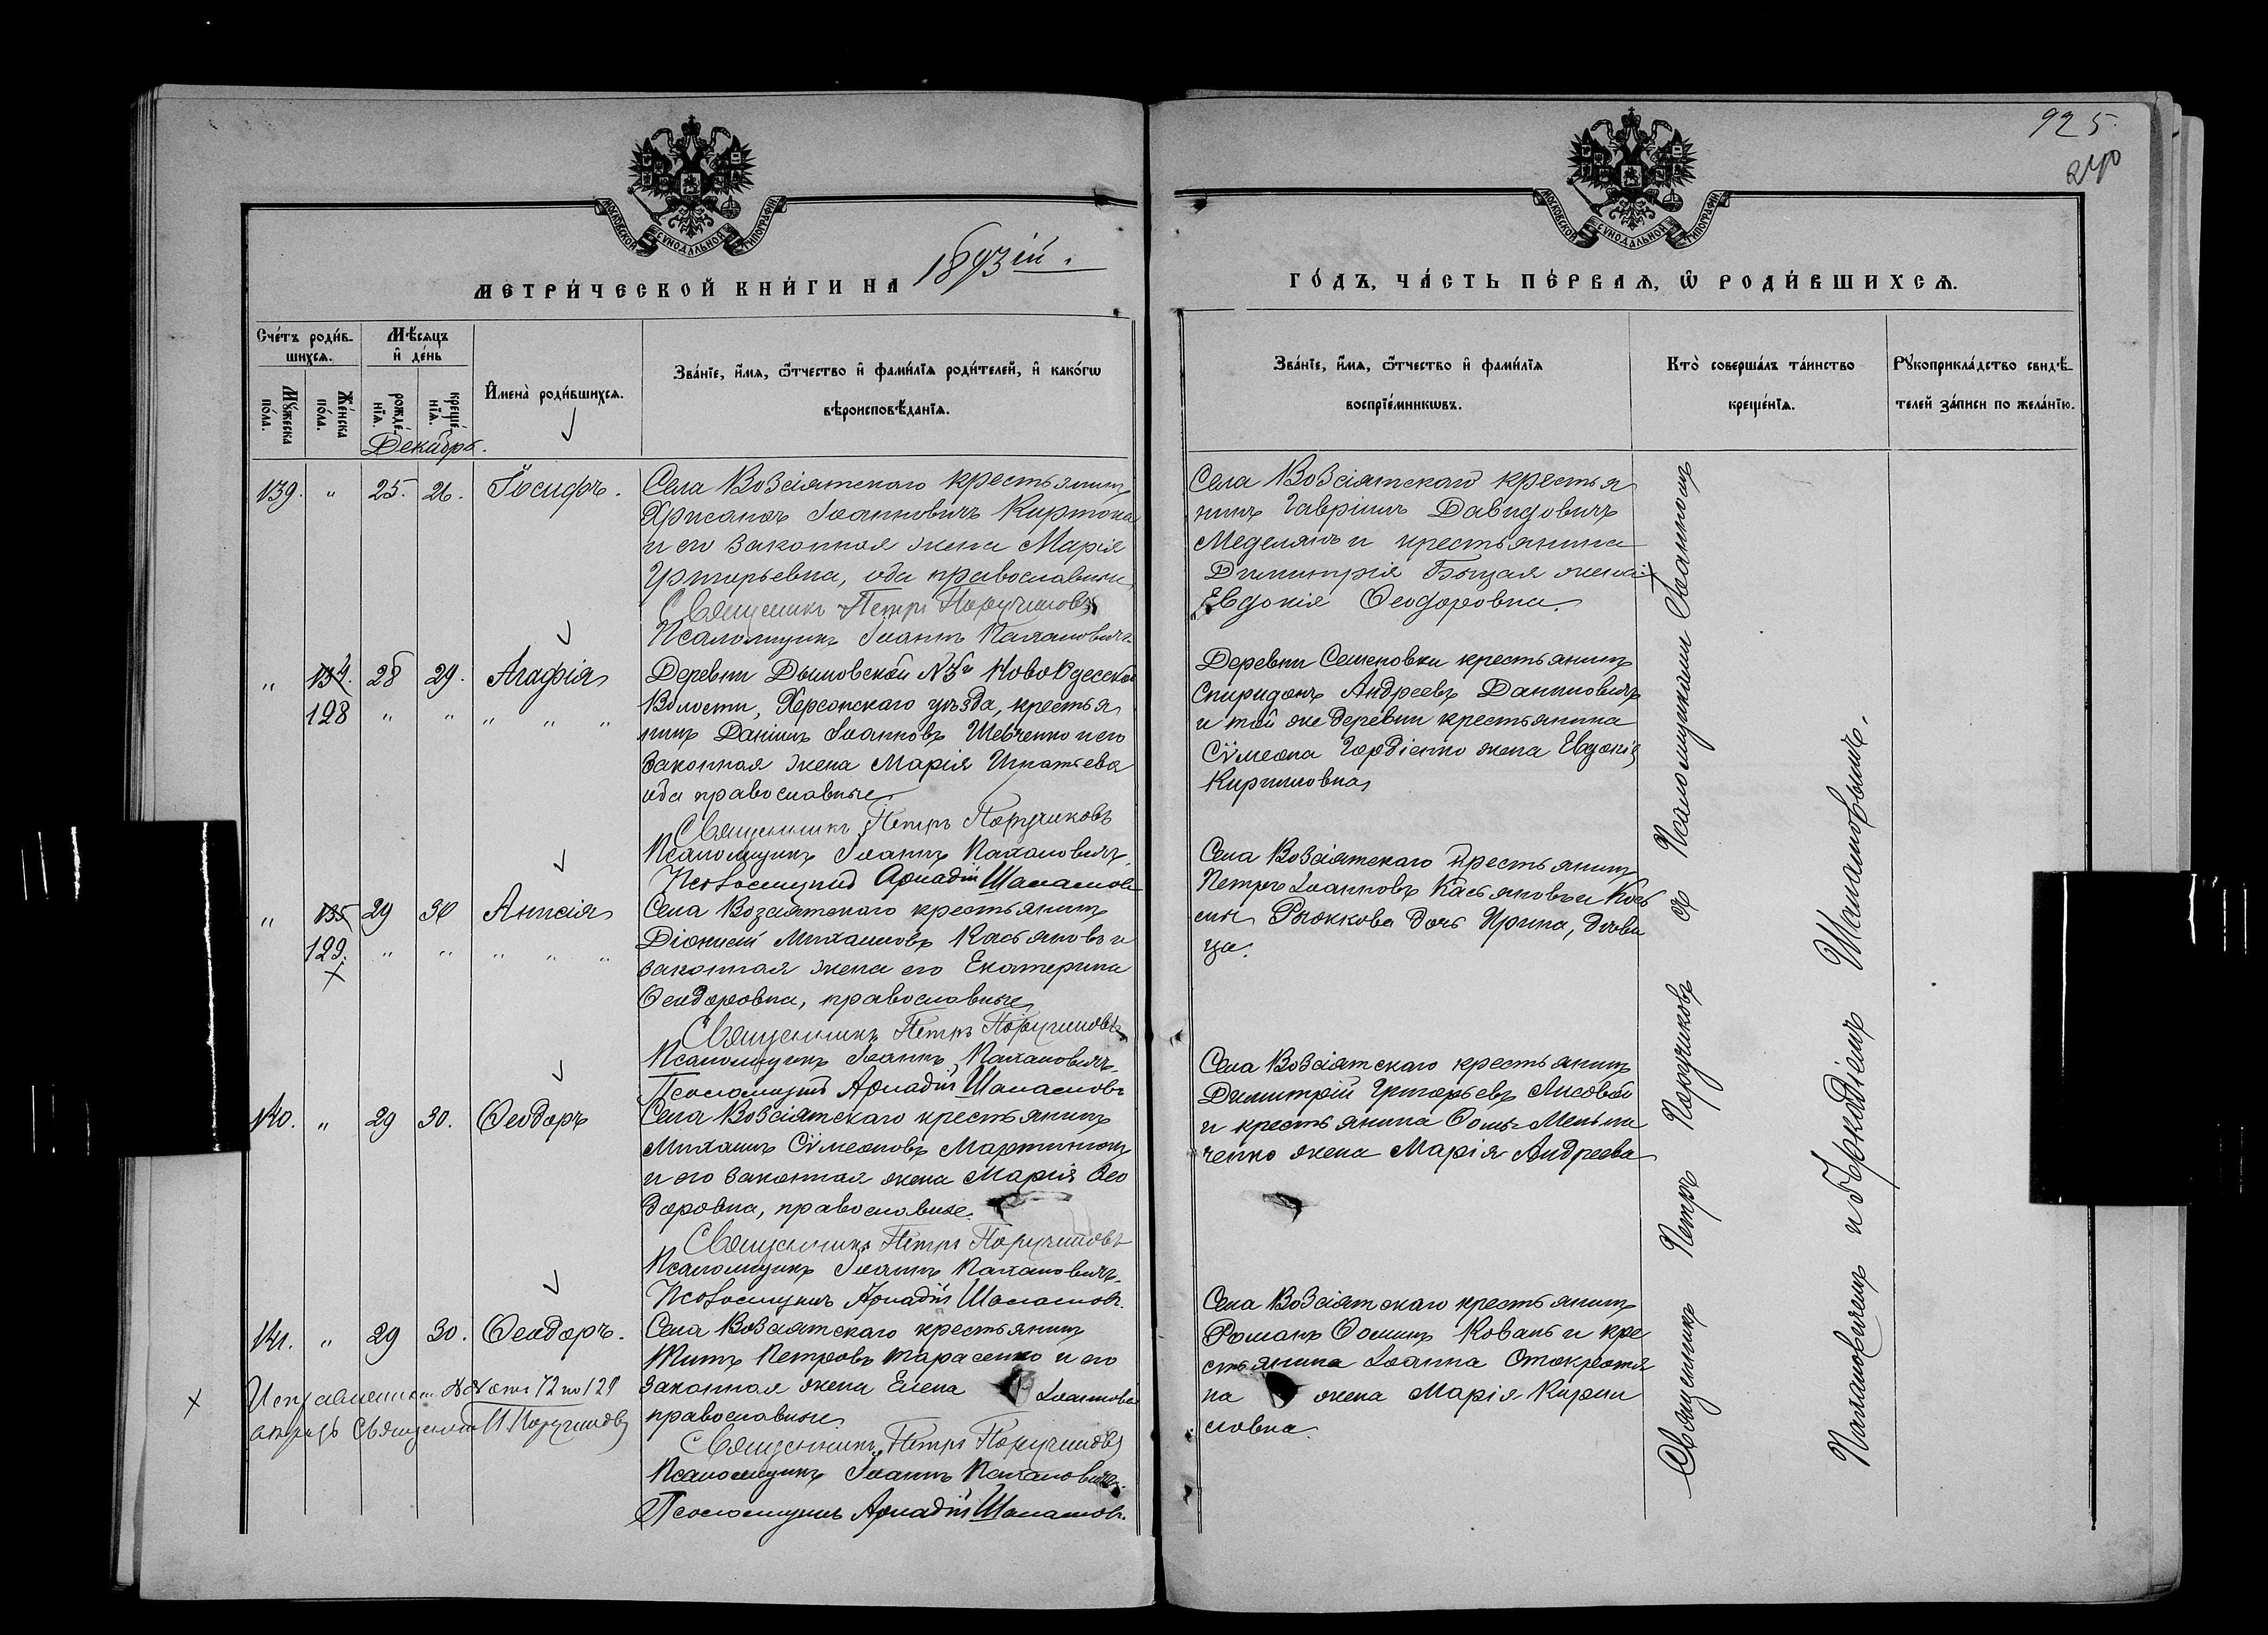 925
240
МОСКОВСКОЙ СУНОДАЛЬНОЙ ТИПОГРАФІИ
МОСКОВСКОЙ СУНОДАЛЬНОЙ ТИПОГРАФІИ
МЕТРИ́ЧЕСКОЙ КНИ́ГИ НА 1893 ій.
ГО́ДЪ, ЧА́СТЬ ПЕ́РВАѦ, Ѿ РОДИ́ВШИХСѦ.
Сче́тъ роди́в-
шихсѧ.
Мꙋ́жеска по́ла.
Же́нска по́ла.
Мѣ́сяцъ
и҆ де́нь
рожде́нїѧ.
креще́нїѧ.
Декабрь.
И҆мена̀ роди́вшихсѧ.
Зва́нїе, и҆́мѧ, ѻ҆́тчество и҆ фами́лїѧ роди́телей, и҆ како́гѡ
вѣроисповѣ́данїѧ.
Зва́нїе, и҆́мѧ, ѻ҆́тчество и҆ фами́лїѧ
воспрїе́мникѡвъ.
Кто̀ соверша́лъ та́инство
креще́нїѧ.
Рꙋкоприкла́дство свидѣ́-
телей за́писи по жела́нїю.
139. " 25. 26. Іосифъ.
Села Возсіятскаго крестьянинъ
Хрисанѳъ Іоанновичъ Киртока
и его законная жена Марія
Григорьевна, оба православные
Священникъ Петръ Поручиковъ
Псаломщикъ Іоаннъ Палановичъ
Села Возсіятскаго крестья
нинъ Гавріилъ Давидовичъ
Меделянъ и крестьянина
Димитрія жена
Евдокія Ѳеодоровна.
" 134. 28 29. Агафія
128 " " " " "
Деревни Дымовской №3й Новоодесской
Волости, Херсонскаго уѣзда, крестья
нинъ Даніилъ Іоанновъ Шевченко и его
законная жена Марія Игнатьева
оба православные
Священникъ Петръ Поручиковъ
Псаломщикъ Іоаннъ Палановичъ
Псаломщикъ Аркадій Шаламовъ
Деревни Семеновки крестьянинъ
Спиридонъ Андреевъ Даниловичъ
и той же деревни крестьянина
Сѵмеона Гордіенко жена Евдокія
Кирилловна
" 135 29 30 Анисія
129. " " " " "
Села Возсіятскаго крестьянинъ
Діонисій Михаиловъ Касьяновъ и
законная жена его Екатерина
Ѳеодоровна, православные
Священникъ Петръ Поручиковъ
Псаломщикъ Іоаннъ Палановичъ
Псаломщикъ Аркадій Шаламовъ
Села Возсіятскаго крестьянинъ
Петръ Іоанновъ Касьяновъ и Кось
мы Рыжкова дочь Ирина, дѣви
ца.
140. " 29 30. Ѳеодоръ
Села Возсіятскаго крестьянинъ
Михаилъ Сѵмеоновъ Мартинюкъ
и его законная жена Марія Ѳео
доровна, православные.
Священникъ Петръ Поручиковъ
Псаломщикъ Іоаннъ Палановичъ
Псаломщикъ Аркадій Шаламовъ.
Села Возсіятскаго крестьянинъ
Димитрій Григорьевъ Лисовой
и крестьянина Ѳомы Мельни
ченко жена Марія Андреева
141. " 29 30. Ѳеодоръ.
Села Возсіятскаго крестьянинъ
Титъ Петровъ Тарасенко и его
законная жена Елена Іоаннова
православные
Священникъ Петръ Поручиковъ
Псаломщикъ Іоаннъ Палановичъ
Псаломщикъ Аркадій Шаламовъ.
Села Возсіятскаго крестьянинъ
Романъ Ѳоминъ Коваль и кре
стьянина Іоанна
на жена Марія Кирил
ловна.
Исправленному №№ отъ 72 по 129
Священникъ П. Поручиковъ
Священникъ Петръ Поручиковъ съ Псаломщиками Іоанномъ
Палановичемъ и Аркадіемъ Шаламовымъ.